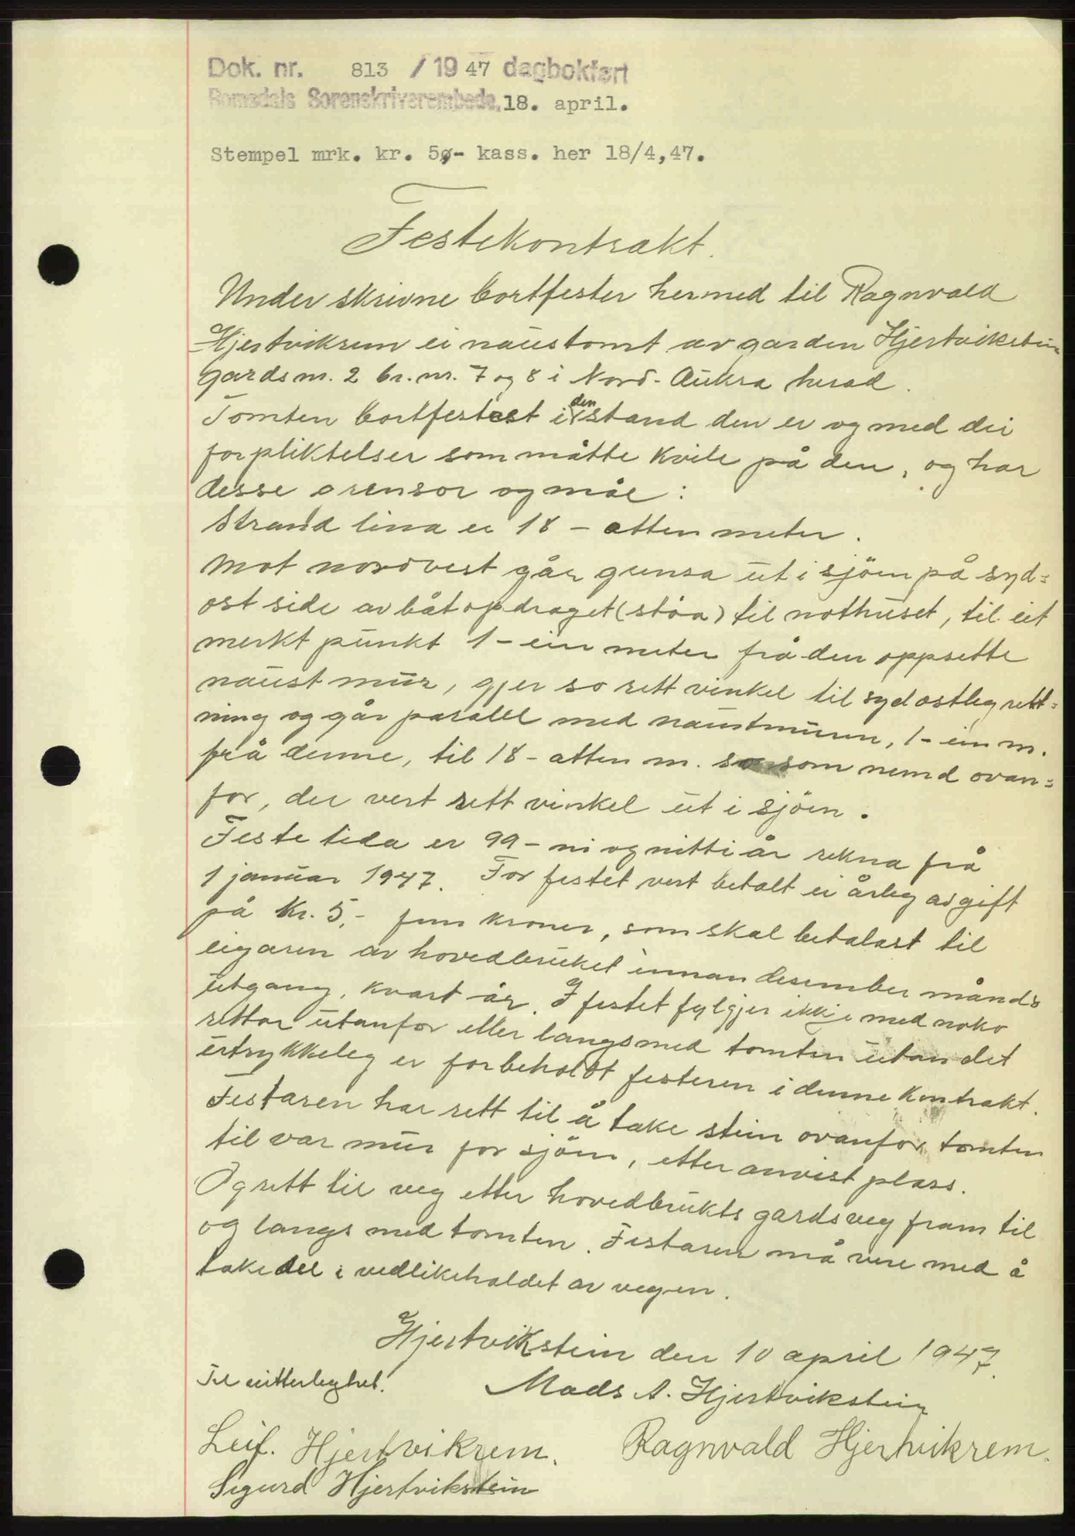 Dok. nr. 813 / 1947 dagbokført
Romsdals Sorenskriverembede, 18. april.
Stempel mrk. kr. 50- kass. her 18/4,47.
Festekontrakt.
Underskrivne bortfester hermed til Ragnvald
Hjertvikrem ei naustomt av garden Hjertvikstein
gardsnr. 2 br. nr. 7 og 8 i Nord-Aukra herad.
Tomten bortfestest i den stand den er og med dei
forpliktelser som måtte kvile på den, og har
desse grensor og mål:
Strandlina er 18 - atten meter.
Mot nordvest går grensa ut i sjöen på syd=
ost side av båtopdraget (støa) til nothuset, til eit
merkt punkt 1 - ein meter frå den oppsette
naustmur, gjer so rett vinkel til sydostleg rett=
ning og går paralel med naustmuren, 1 - ein m.
frå denne, til 18 - atten m. so som nemd ovan=
for, der vert rett vinkel ut i sjöen.
Festetida er 99 - ni og nitti år rekna frå
1 januar 1947. For festet vert betalt ei årleg avgift
på Kr. 5,- fem kroner, som skal betalast til
eigaren av hovedbruket innan desember månds
utgang, kvart år. I festet fylgjer ikkje med noko
rettar utanfor eller langsmed tomten utan det
utrykkeleg er forbeholdt festeren i denne kontrakt.
Festaren har rett til å take stein ovanfor tomten
til var mur for sjöen, etter anvist plass.
Og rett til veg etter hovedbrukts gardsveg fram til
og langs med tomten. Festaren må vere med å
take del i vedlikeholdet av vegen.
Hjertvikstein den 10 april 1947.
Til vitterleghet.
Mads A. Hjertvikstein
Leif. Hjertvikrem.
Ragnvald Hjertvikrem.
Sigurd Hjertvikstein